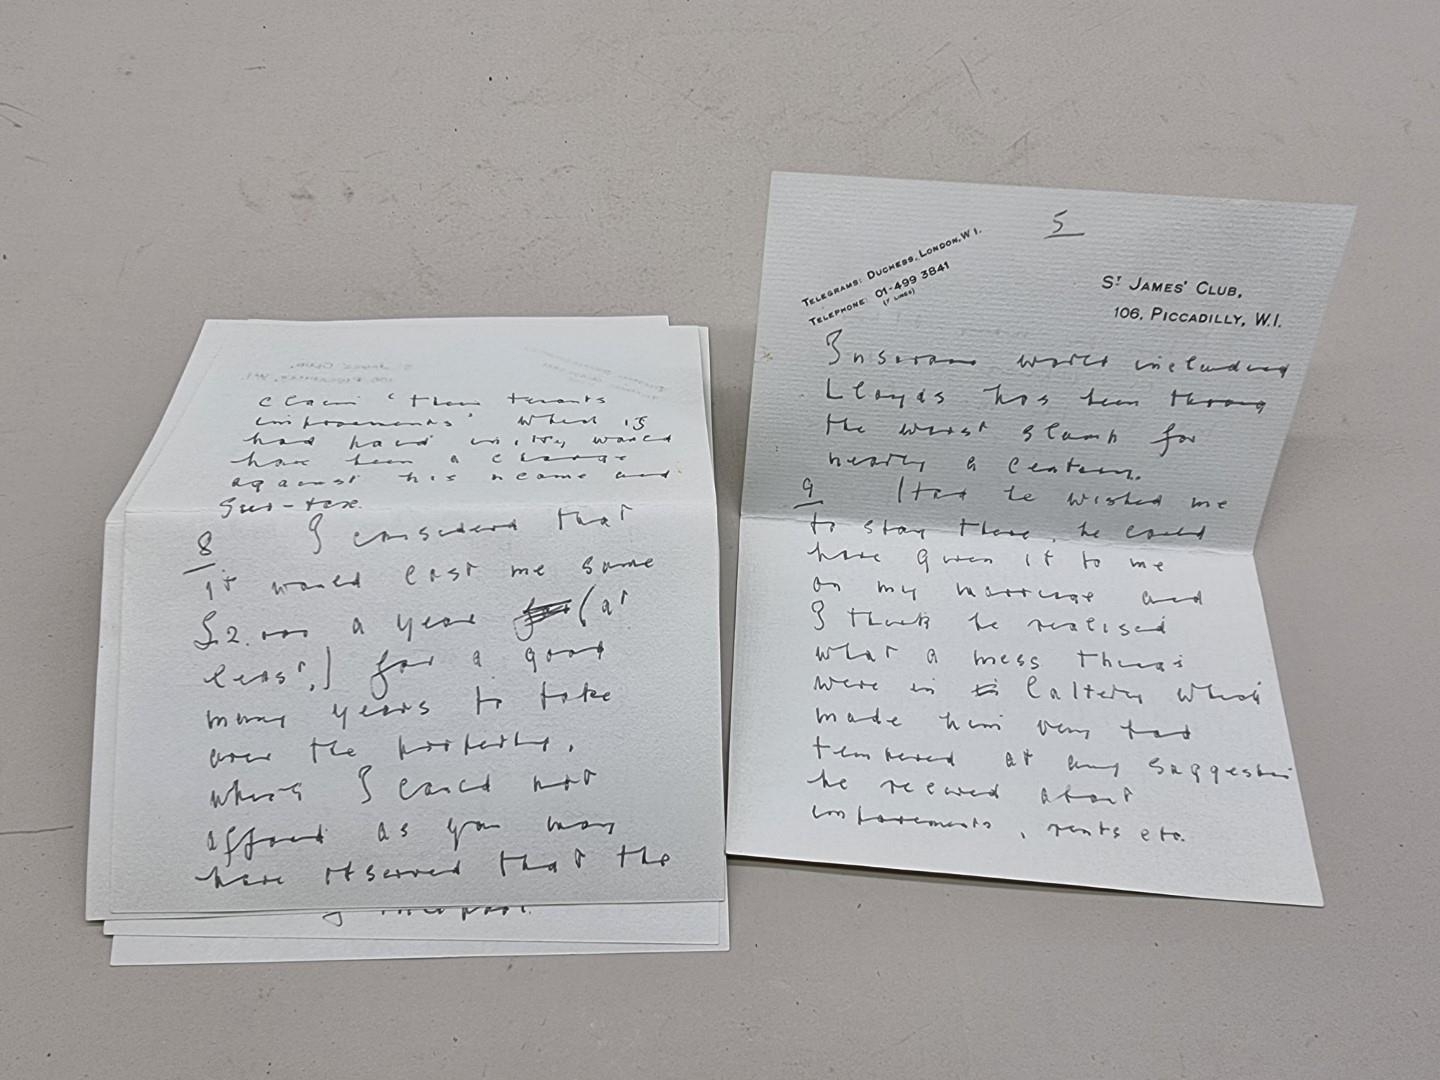 claim 'then tenants
improvements' which is
had paid in, they would
have been a charge
against his income and
Sur-tax.
8 I considered that
it would cost me some
£2.000 a year (at
least,) for a good
many years to take
over the property,
which I could not
afford as you may
have observed that the
5
TELEGRAMS: DUCHESS, LONDON, W.1.
TELEPHONE: 01-499 3841
(7 LINES)
ST JAMES' CLUB,
106, PICCADILLY, W.1.
Insurance world including
Lloyds has been through
the worst slump for
nearly a century.
9 Had he wished me
to stay there, he could
have given it to me
on my marriage and
I think he realised
what a mess things
were in which
made him very bad
tempered at any suggestion
he received about
improvements, rents etc.